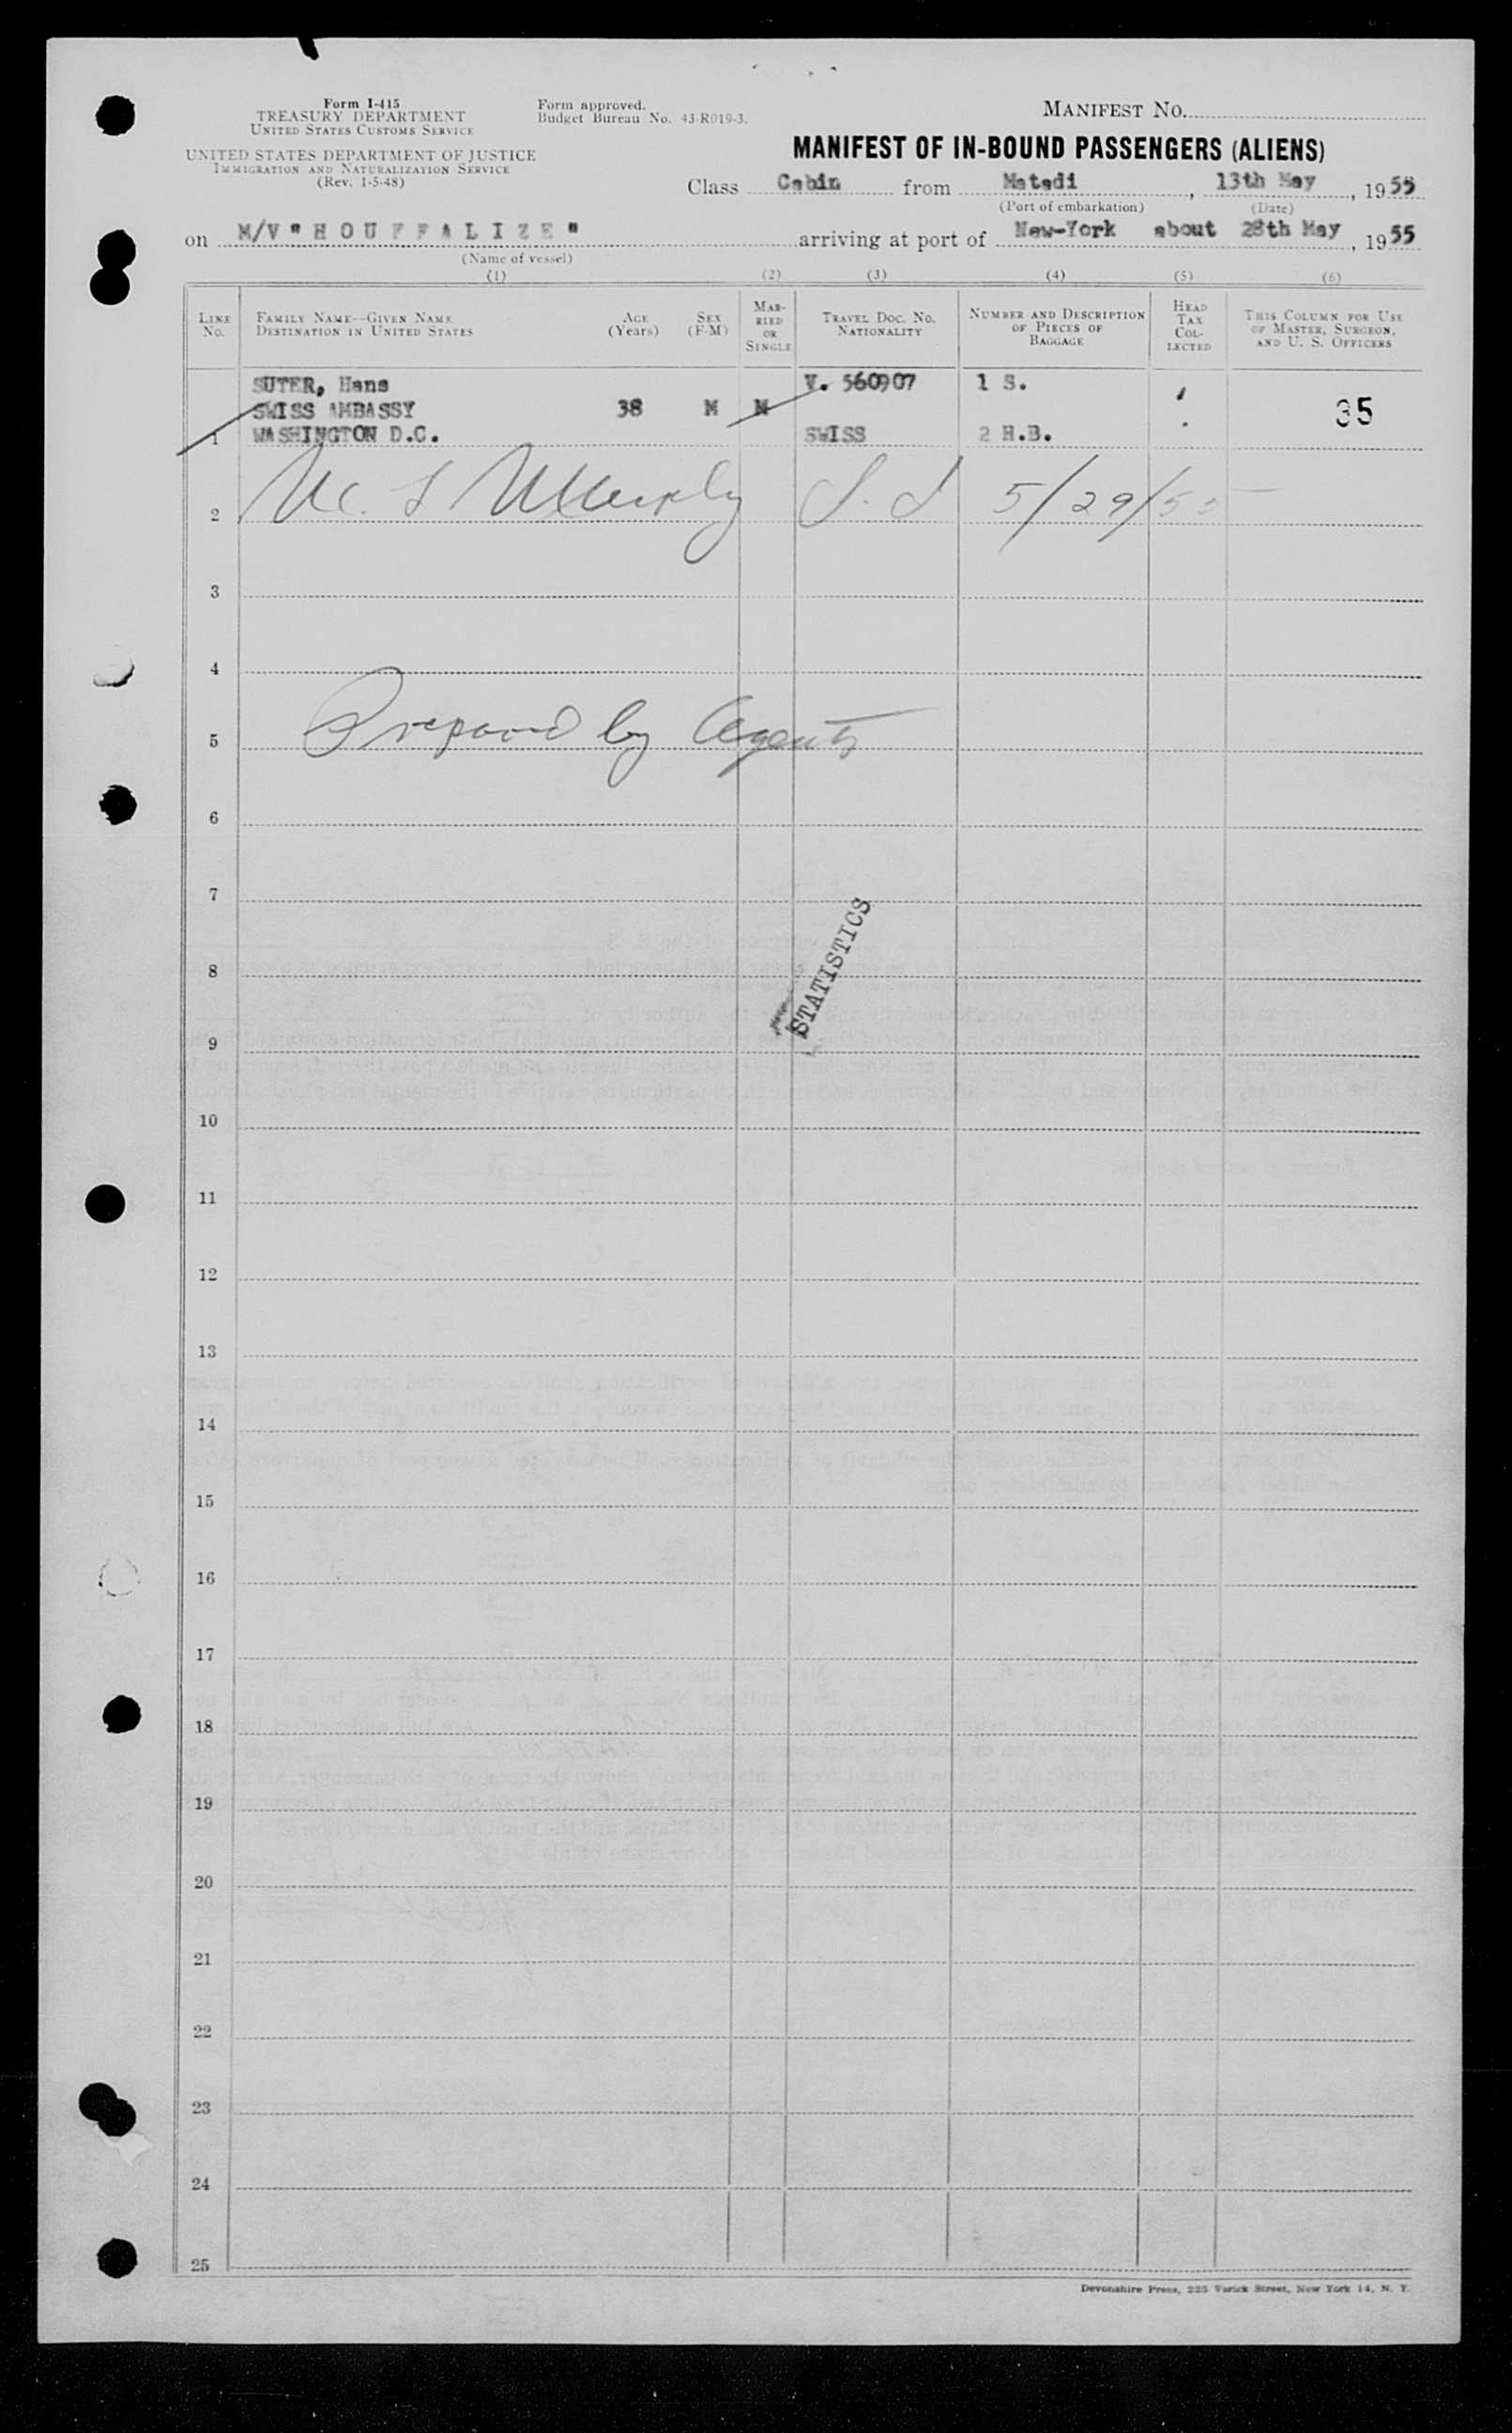 Form I-415
TREASURY DEPARTMENT
UNITED STATES CUSTOMS SERVICE
UNITED STATES DEPARTMENT OF JUSTICE
IMMIGRATION AND NATURALIZATION SERVICE
(Rev. 1-5-48)
Form approved.
Budget Bureau No. 43-R019-3.
MANIFEST NO.
MANIFEST OF IN-BOUND PASSENGERS (ALIENS)
Class Cabin from Matadi, 13th May, 1955
(Port of embarkation) (Date)
on M/V "HOUFFALIZE" arriving at port of New-York about 28th May, 1955
(Name of vessel)
(1) (2) (3) (4) (5) (6)
LINE NO.
FAMILY NAME—GIVEN NAME
DESTINATION IN UNITED STATES
AGE (Years)
SEX (F-M)
MARRIED OR SINGLE
TRAVEL DOC. NO.
NATIONALITY
NUMBER AND DESCRIPTION OF PIECES OF BAGGAGE
HEAD TAX COLLECTED
THIS COLUMN FOR USE OF MASTER, SURGEON, AND U. S. OFFICERS
SUTER, Hans V. 560907 1 S.
SWISS AMBASSY 38 M M 35
1 WASHINGTON D.C. SWISS 2 H.B.
2 5/29/55
3
4
5 Prepared by Agents
6
7
STATISTICS
8
9
10
11
12
13
14
15
16
17
18
19
20
21
22
23
24
25
Devonshire Press, 225 Varick Street, New York 14, N. Y.